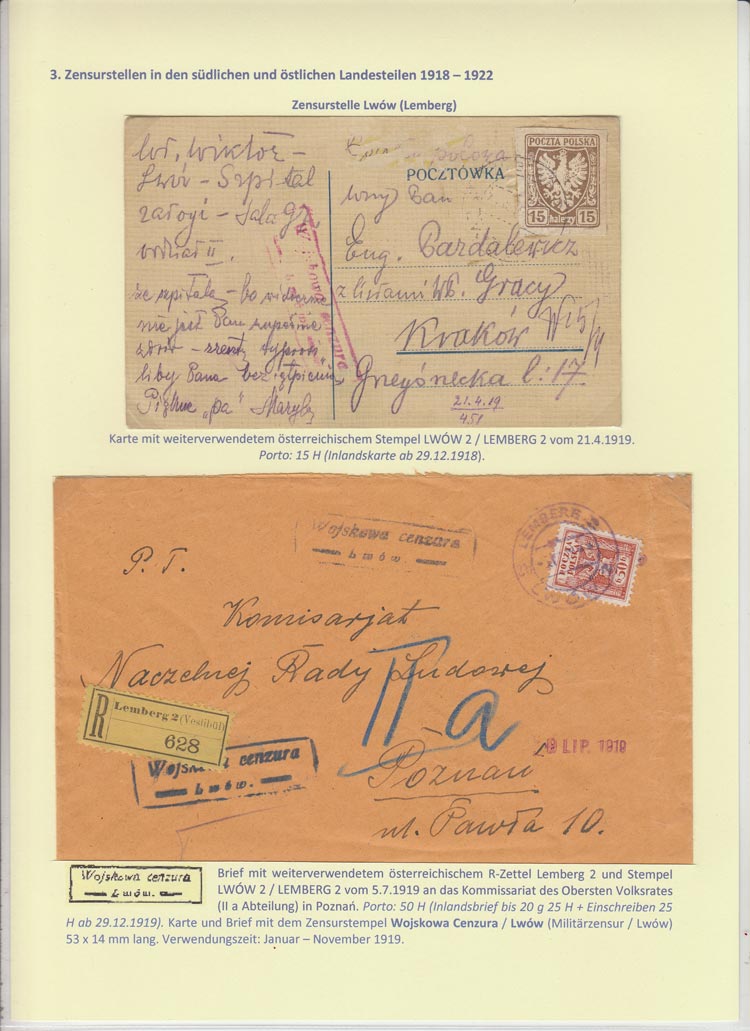 3. Zensurstellen in den südlichen und östlichen Landesteilen 1918 – 1922
Zensurstelle Lwów (Lemberg)
Wiktor –
Lwów – Szpital
załogi – Sala
oddział II.
że szpitala – bo widocznie
nie jest Pan zupełnie
zdrów –
Pana bez
"pa" Maryla
polowa
POCZTÓWKA
POCZTA POLSKA
15 halerzy 15
Wojskowa cenzura
Pan
Eug.
z listami
Kraków
l: 17
21.4.19
451
Karte mit weiterverwendetem österreichischem Stempel LWÓW 2 / LEMBERG 2 vom 21.4.1919.
Porto: 15 H (Inlandskarte ab 29.12.1918).
Wojskowa cenzura
Lwów
LEMBERG 2
LWÓW 2
POCZTA
POLSKA
50
P. T.
Komisarjat
Naczelnej Rady Ludowej
II a
R
Lemberg 2 (Vestibül)
628
Wojskowa cenzura
Lwów.
LIP. 1919
Poznań
ul. Pawła 10.
Wojskowa cenzura
Lwów.
Brief mit weiterverwendetem österreichischem R-Zettel Lemberg 2 und Stempel
LWÓW 2 / LEMBERG 2 vom 5.7.1919 an das Kommissariat des Obersten Volksrates
(II a Abteilung) in Poznań. Porto: 50 H (Inlandsbrief bis 20 g 25 H + Einschreiben 25
H ab 29.12.1919). Karte und Brief mit dem Zensurstempel Wojskowa Cenzura / Lwów (Militärzensur / Lwów)
53 x 14 mm lang. Verwendungszeit: Januar – November 1919.